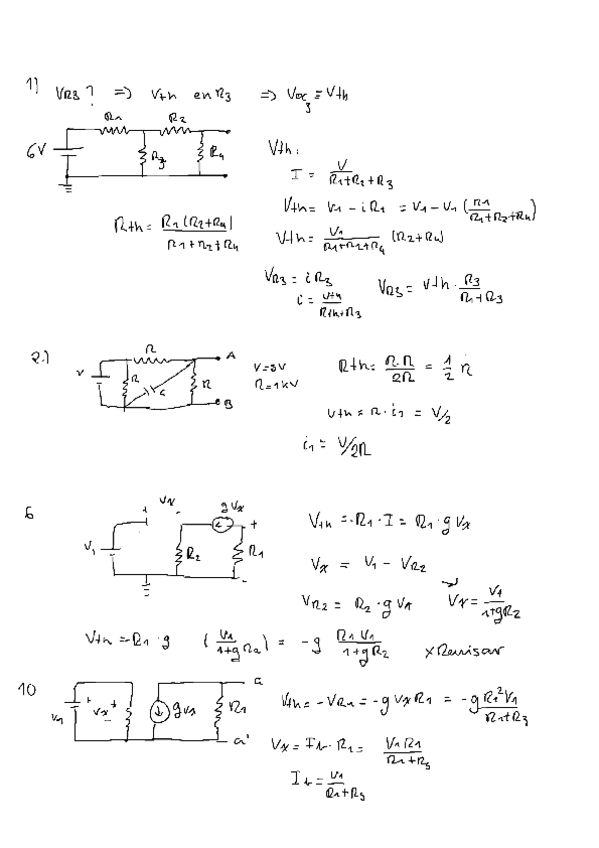 1) VR3? => Vth en R3 => Voc3 = Vth
R1 R2
6V R3 R4
Vth:
I = V / R1+R2+R3
Vth = V1 - iR1 = V1 - V1 (R1 / R1+R2+R4)
Rth = R1(R2+R4) / R1+R2+R4
Vth = V1 / R1+R2+R4 (R2+R4)
VR3 = iR3
i = Vth / Rth+R3
VR3 = Vth · R3 / R1+R3
2.)
R A
V R C R B
V=5V
R=1kV
Rth = R·R / 2R = 1/2 R
Vth = R·i1 = V/2
i1 = V/2R
6
+ Vx gVx +
V1 R2 R1 -
Vth = -R1·I = R1·gVx
Vx = V1 - VR2
VR2 = R2·gVx Vx = V1 / 1+gR2
Vth = R1·g (V1 / 1+gR2) = -g R1V1 / 1+gR2 x Revisar
10
a
V1 + Vx + - gVx R1
a'
Vth = -VR1 = -gVxR1 = -g R1²V1 / R1+R3
Vx = Ix·R1 = V1R1 / R1+R5
Ix = V1 / R1+R5